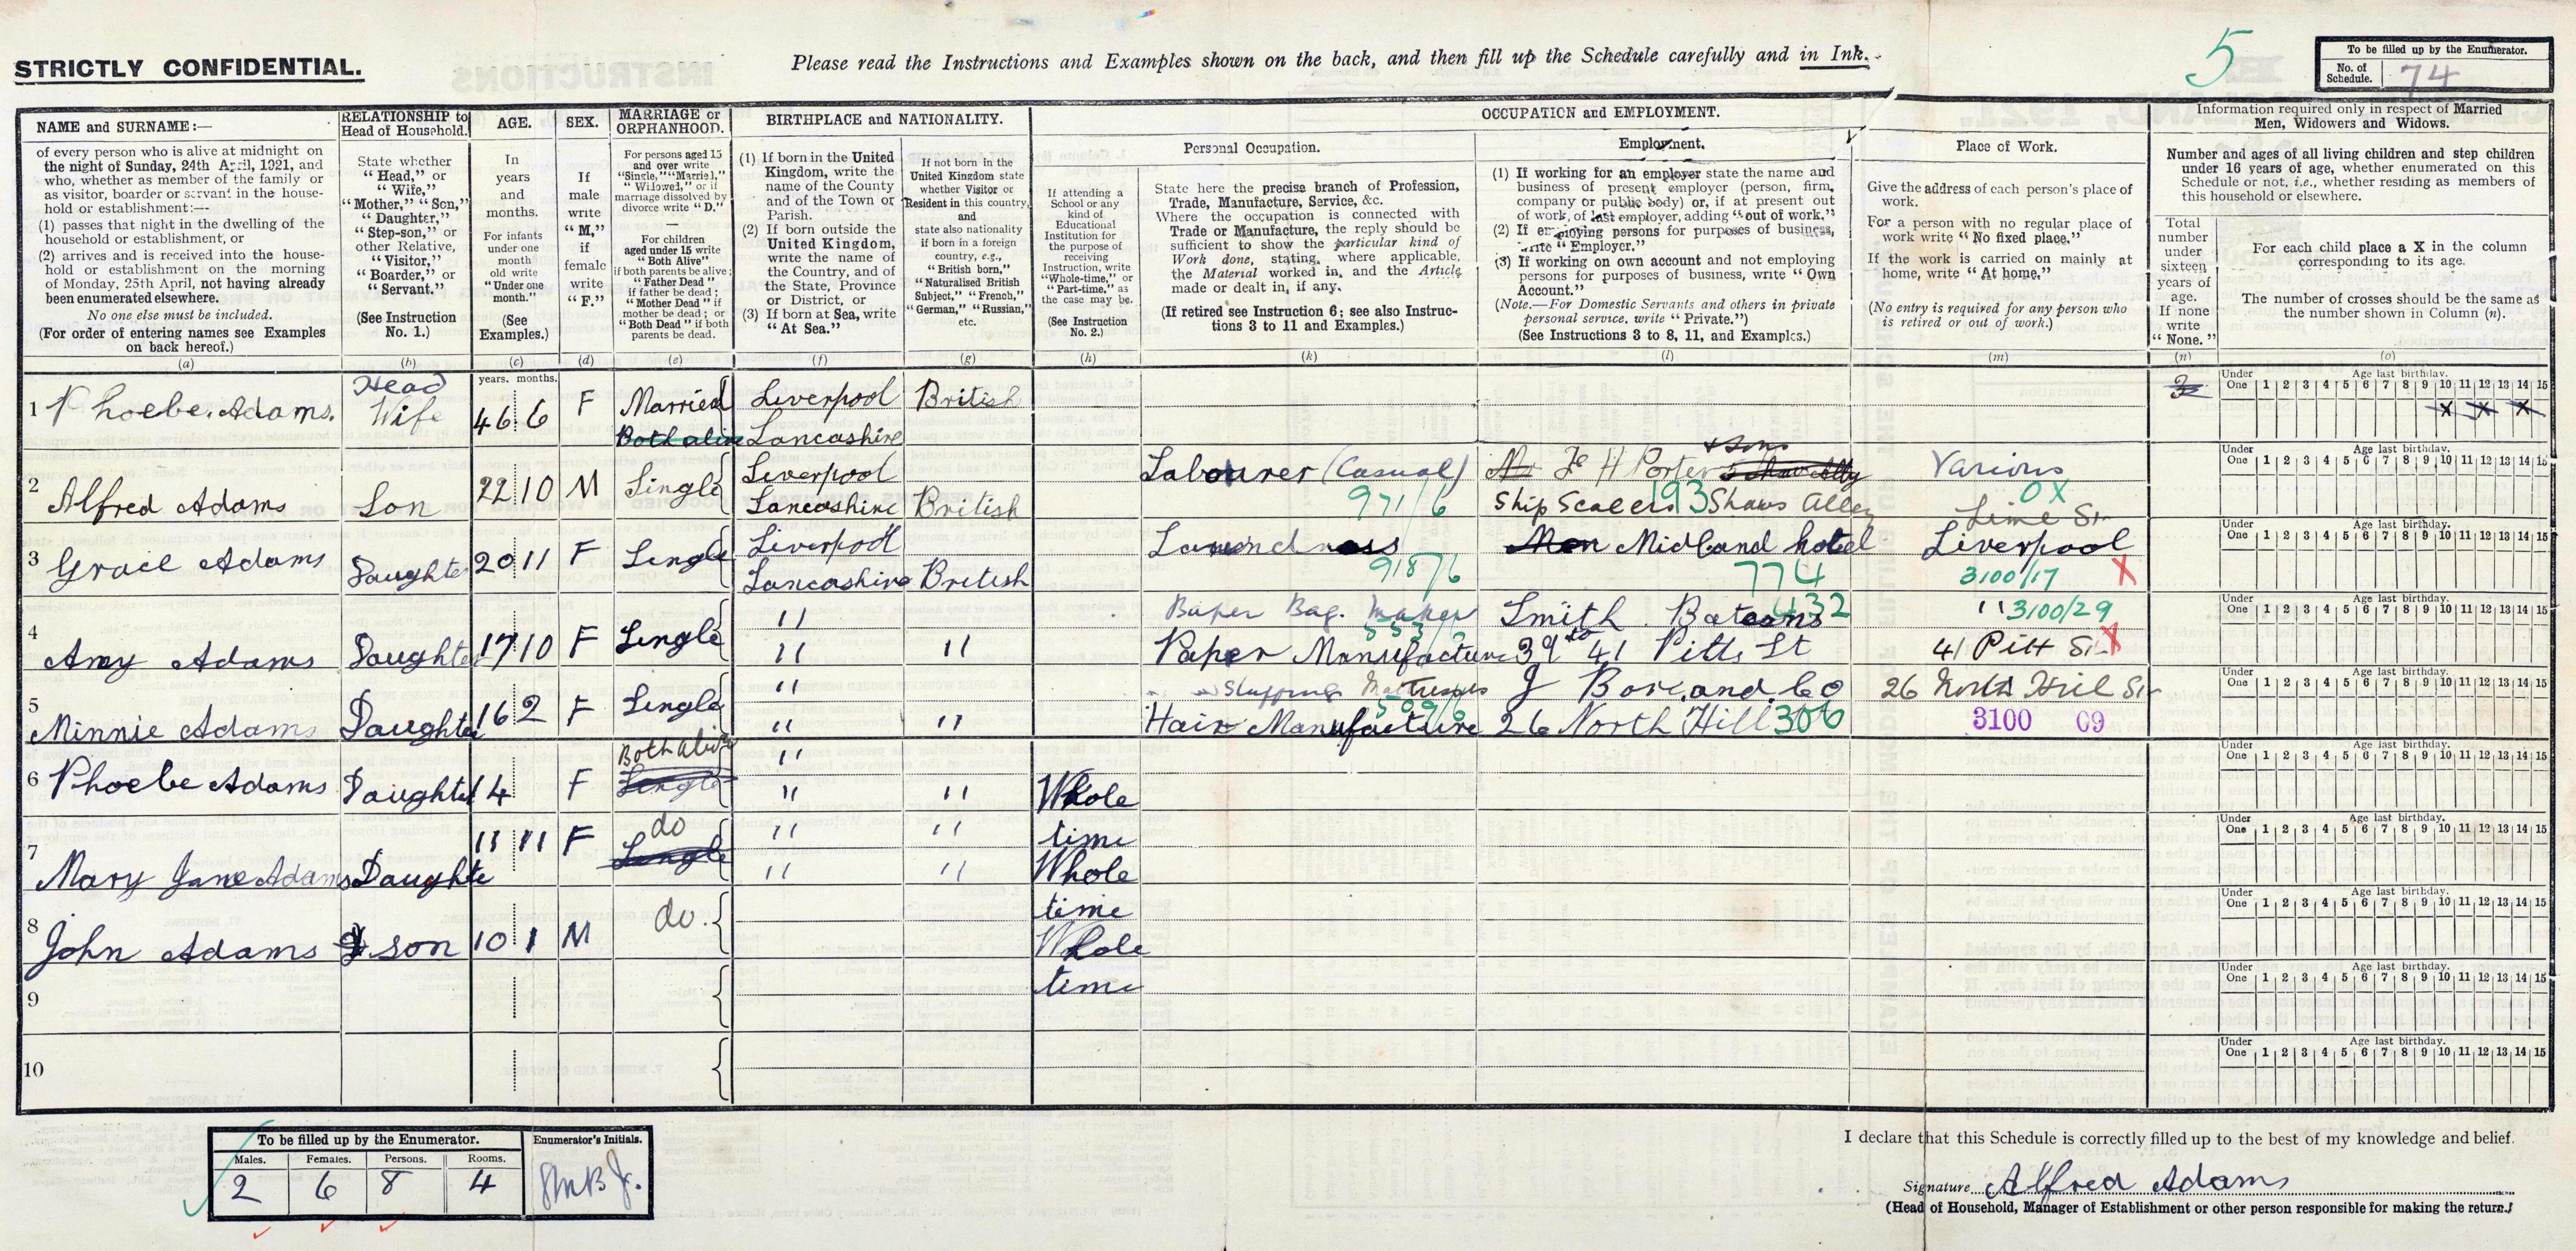 STRICTLY CONFIDENTIAL.
Please read the Instructions and Examples shown on the back, and then fill up the Schedule carefully and in Ink.
5
To be filled up by the Enumerator.
No. of Schedule. 74
NAME and SURNAME:—
of every person who is alive at midnight on
the night of Sunday, 24th April, 1921, and
who, whether as member of the family or
as visitor, boarder or servant in the house-
hold or establishment:—
(1) passes that night in the dwelling of the
household or establishment, or
(2) arrives and is received into the house-
hold or establishment on the morning
of Monday, 25th April, not having already
been enumerated elsewhere.
No one else must be included.
(For order of entering names see Examples
on back hereof.)
(a)
RELATIONSHIP to
Head of Household.
State whether
"Head," or
"Wife,"
"Mother," "Son,"
"Daughter,"
"Step-son," or
other Relative,
"Visitor,"
"Boarder," or
"Servant."
(See Instruction
No. 1.)
(b)
AGE.
In
years
and
months.
For infants
under one
month
old write
"Under one
month."
(See
Examples.)
(c)
SEX.
If
male
write
"M,"
if
female
write
"F."
(d)
MARRIAGE or
ORPHANHOOD.
For persons aged 15
and over write
"Single," "Married,"
"Widowed," or if
marriage dissolved by
divorce write "D."
For children
aged under 15 write
"Both Alive"
if both parents be alive;
"Father Dead"
if father be dead;
"Mother Dead" if
mother be dead; or
"Both Dead" if both
parents be dead.
(e)
BIRTHPLACE and NATIONALITY.
(1) If born in the United
Kingdom, write the
name of the County
and of the Town or
Parish.
(2) If born outside the
United Kingdom,
write the name of
the Country, and of
the State, Province
or District, or
(3) If born at Sea, write
"At Sea."
(f)
If not born in the
United Kingdom state
whether Visitor or
Resident in this country,
and
state also nationality
if born in a foreign
country, e.g.,
"British born,"
"Naturalised British
Subject," "French,"
"German," "Russian,"
etc.
(g)
OCCUPATION and EMPLOYMENT.
If attending a
School or any
kind of
Educational
Institution for
the purpose of
receiving
Instruction, write
"Whole-time," or
"Part-time," as
the case may be.
(See Instruction
No. 2.)
(h)
Personal Occupation.
State here the precise branch of Profession,
Trade, Manufacture, Service, &c.
Where the occupation is connected with
Trade or Manufacture, the reply should be
sufficient to show the particular kind of
Work done, stating, where applicable,
the Material worked in, and the Article
made or dealt in, if any.
(If retired see Instruction 6; see also Instruc-
tions 3 to 11 and Examples.)
(k)
Employment.
(1) If working for an employer state the name and
business of present employer (person, firm,
company or public body) or, if at present out
of work, of last employer, adding "out of work."
(2) If employing persons for purposes of business,
write "Employer."
(3) If working on own account and not employing
persons for purposes of business, write "Own
Account."
(Note.—For Domestic Servants and others in private
personal service, write "Private.")
(See Instructions 3 to 8, 11, and Examples.)
(l)
Place of Work.
Give the address of each person's place of
work.
For a person with no regular place of
work write "No fixed place."
If the work is carried on mainly at
home, write "At home."
(No entry is required for any person who
is retired or out of work.)
(m)
Information required only in respect of Married
Men, Widowers and Widows.
Number and ages of all living children and step children
under 16 years of age, whether enumerated on this
Schedule or not, i.e., whether residing as members of
this household or elsewhere.
Total
number
under
sixteen
years of
age.
If none
write
"None."
(n)
For each child place a X in the column
corresponding to its age.
The number of crosses should be the same as
the number shown in Column (n).
(o)
years. months.
Under One Age last birthday.
1 2 3 4 5 6 7 8 9 10 11 12 13 14 15
1 Phoebe. Adams. Head Wife 46 6 F Married Both alive Liverpool Lancashire British 3 X X X
2 Alfred Adams Son 22 10 M Single Liverpool Lancashire British Labourer (Casual) 971/6 H Porter & Sons Ship Scalers 193 Shaws Alley Various OX
3 Gracie Adams Daughter 20 11 F Single Liverpool Lancashire British 918/6 Midland hotel 774 Lime St Liverpool 3100/17 X
4 Amy Adams Daughter 17 10 F Single " " " Paper Bag. Maker Paper Manufacture Smith. Batesons 432 39 to 41 Pitts St " 3100/29 41 Pitt St X
5 Minnie Adams Daughter 16 2 F Single " " " Stuffing Mattresses Hair Manufacture 26 North Hill 306 26 North Hill St 3100 09
6 Phoebe Adams Daughter 14 F Both alive Single " " " Whole time
7 Mary Jane Adams Daughter 11 11 F do Single " " " " Whole time
8 John Adams son 10 1 M do. Whole time
9
10
To be filled up by the Enumerator.
Males. Females. Persons. Rooms.
2 6 8 4
Enumerator's Initials.
I declare that this Schedule is correctly filled up to the best of my knowledge and belief.
Signature Alfred Adams
(Head of Household, Manager of Establishment or other person responsible for making the return.)